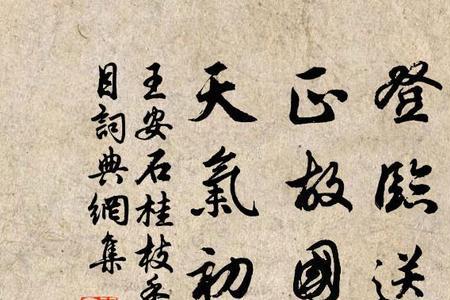 登臨送
正故國
天氣初
王安石桂枝香
目詞典網集